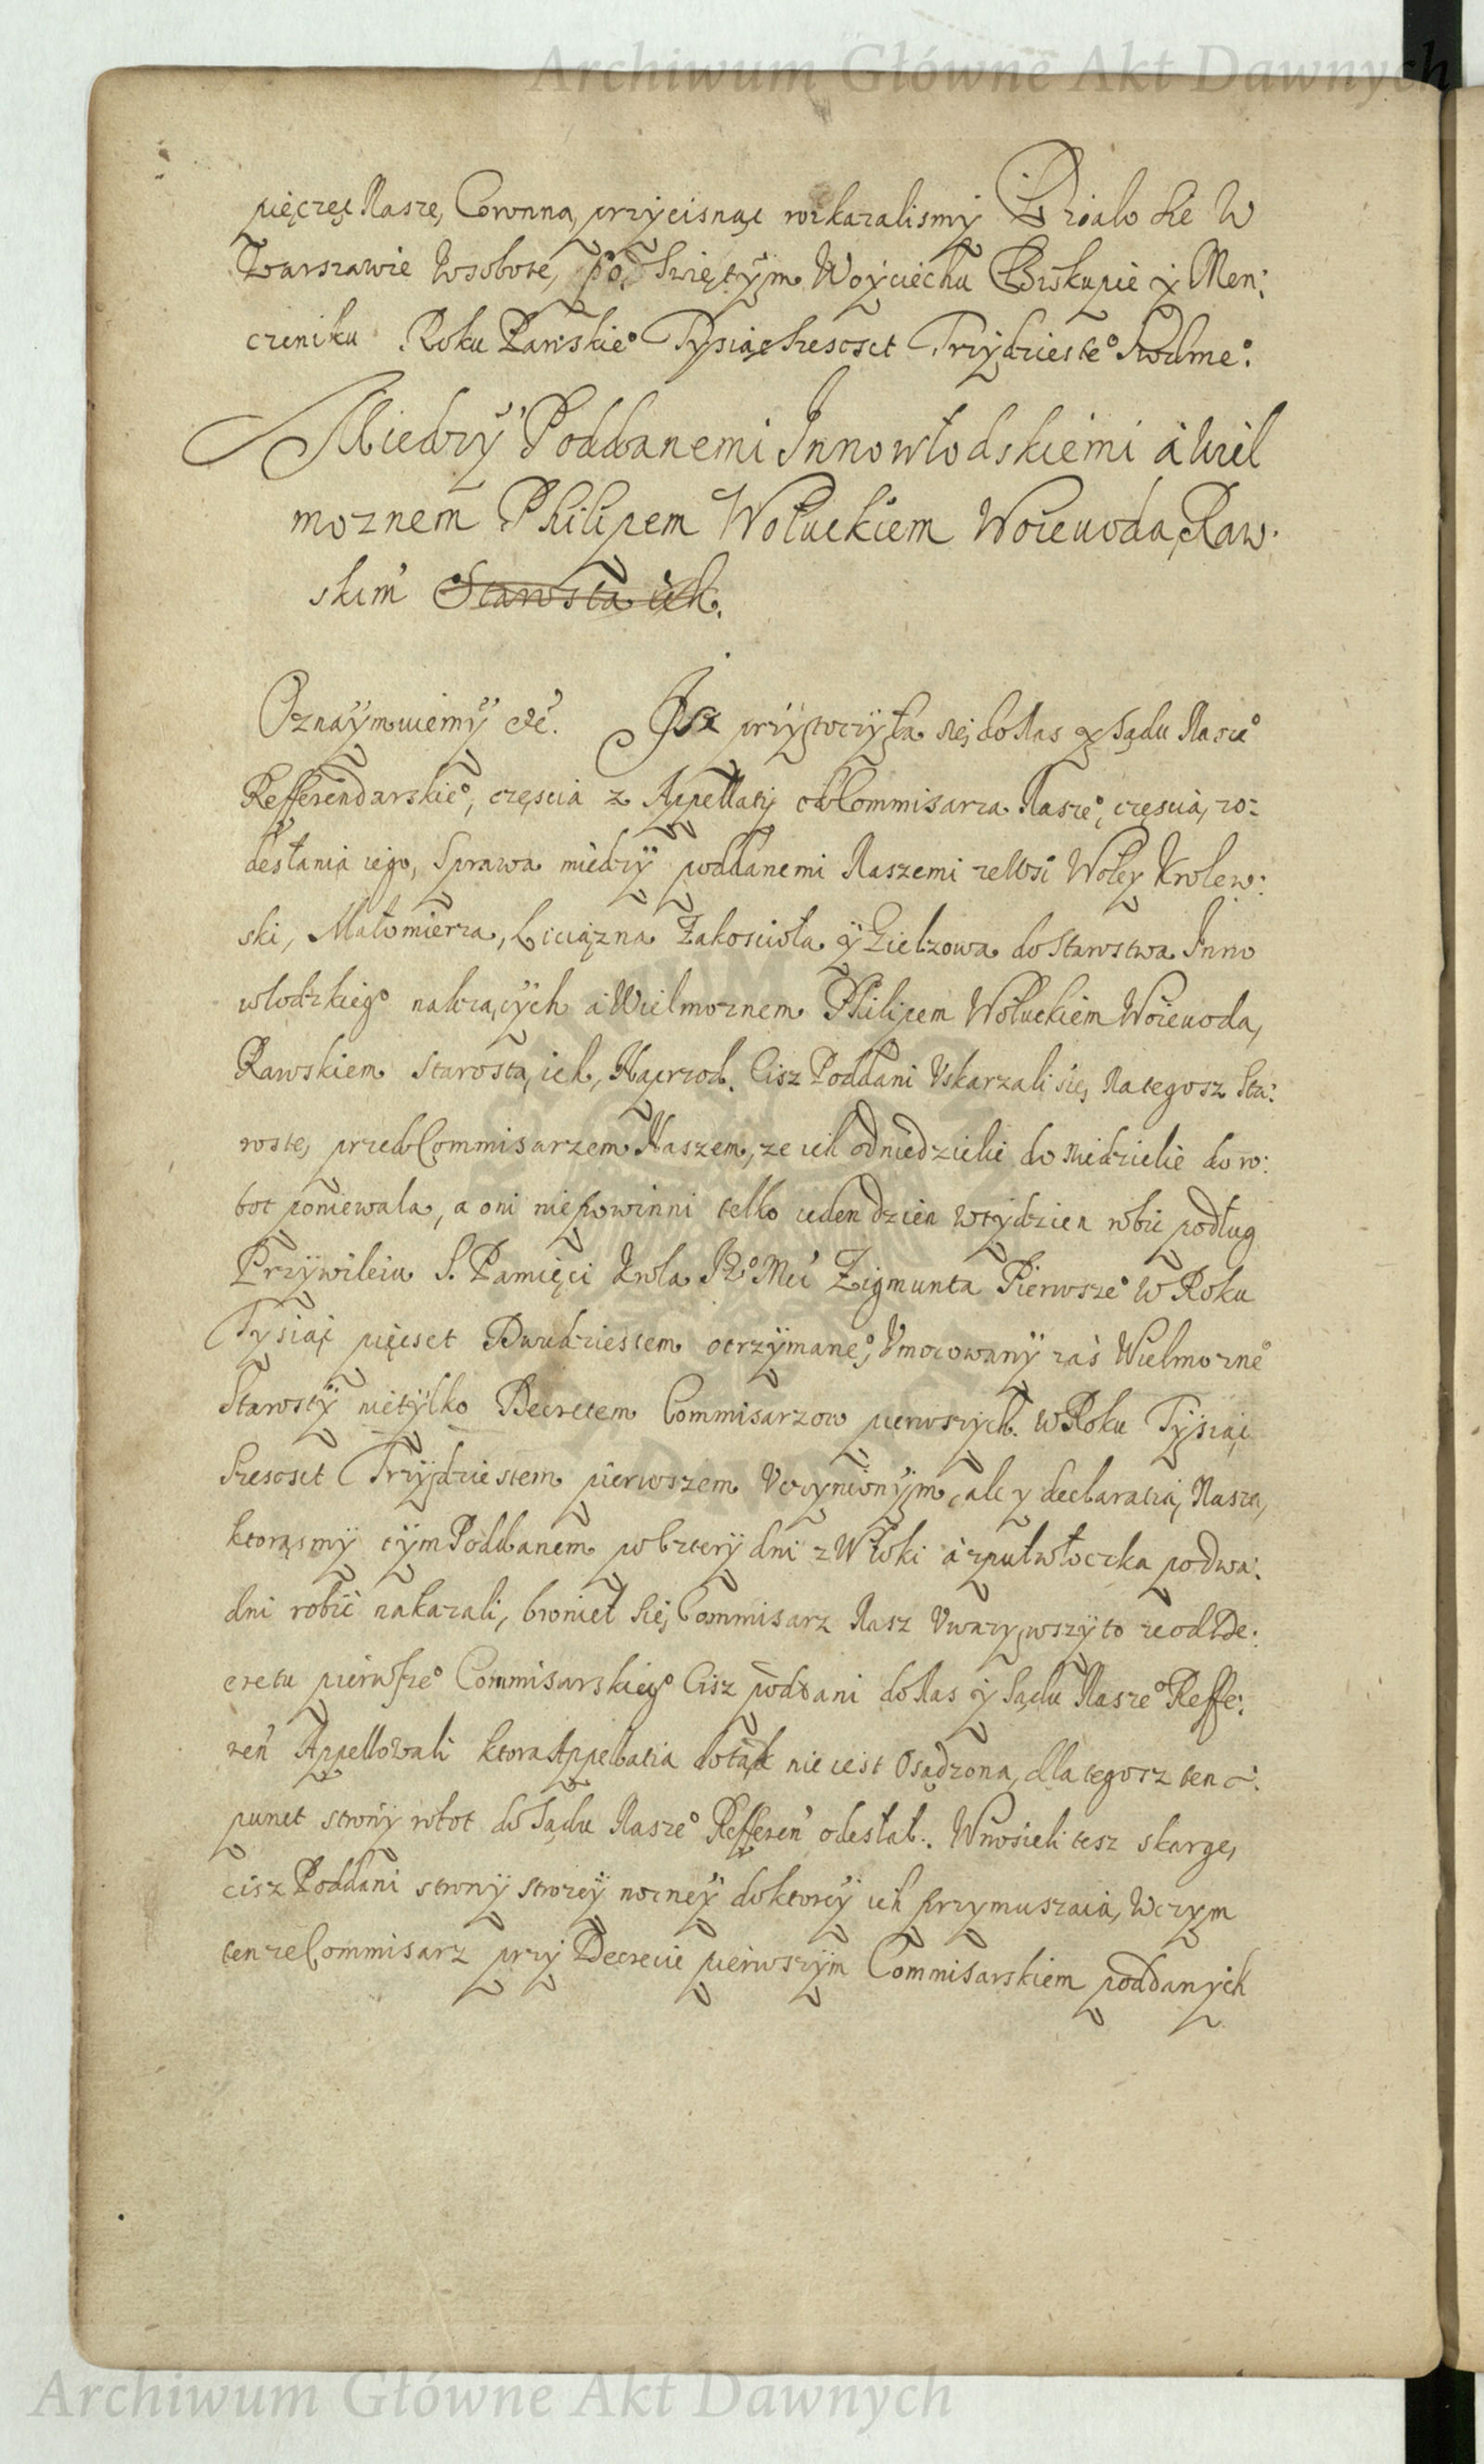 Archiwum Główne Akt Dawnych
pięczęć Naszę, Coronną, przycisnąć roskazalismy Działo się W
Warszawie Wsobotę, po Swiętym Woyciechu Biskupie y Men:
czeniku Roku Panskieº Tysiąc szescset Trzydziesteº Siodmeº.
Miedzy Poddanemi Innowłodskiemi a Wiel
moznem Philipem Wołuckiem Woiewodą Raw.
skim Starostą ich.
Oznaymuiemy etc. Isz przytoczyła się do Nas y Sądu Naszeº
Refferendarskieº, częscią z Appellatij od Commisarza Naszeº, częscią, zo:
desłania iego, Sprawa miedzy poddanemi Naszemi ze Wsi Woley Krolew:
ski, Małomierza, Liciązna Zakosciela y Zielzowa do Starostwa Inno
włodzkiegº nalezących a Wielmoznem Philipem Wołuckiem Woiewodą,
Rawskiem Starostą, ich, Naprzod. Cisz Poddani Vskarzali się, Na tegosz Sta:
rostę, przed Commisarzem Naszem, ze ich od niedzielie do niedzielie do ro:
bot poniewala, a oni niepowinni telko ieden dzien w tydzien robić podług
Przywileiu S. Pamięci Krola Jº Mci Zigmunta Pierwszeº W Roku
Tysiąc pięcset Dwudziestem otrzymaneº, Vmocowany zaś Wielmozneº
Starosty nietylko Decretem Commisarzow pierwszych. w Roku Tysiąc
Szescset Trzydziestem pierwszem Vczynionym, ale y declaratią, Naszą,
ktorąsmy tym Poddanem po cztery dni z Włoki a z pułwłoczka po dwa:
dni robić nakazali, bronieł się, Commisarz Nasz Vwazywszy to ze od De:
cretu pierwszeº Commisarskiegº Cisz poddani do Nas y Sądu Naszeº Reffe:
ren Appellowali ktora Appellatia dotąd nie iest Osądzona, dla tegosz ten
punct strony robot do Sądu Naszeº Refferen odesłał. Wnosieli tesz skargę,
cisz Poddani strony strozey nocney do ktorey ich przymuszaią, Wczym
tenze Commisarz przy Decrecie pierwszym Commisarskiem poddanych
Archiwum Główne Akt Dawnych